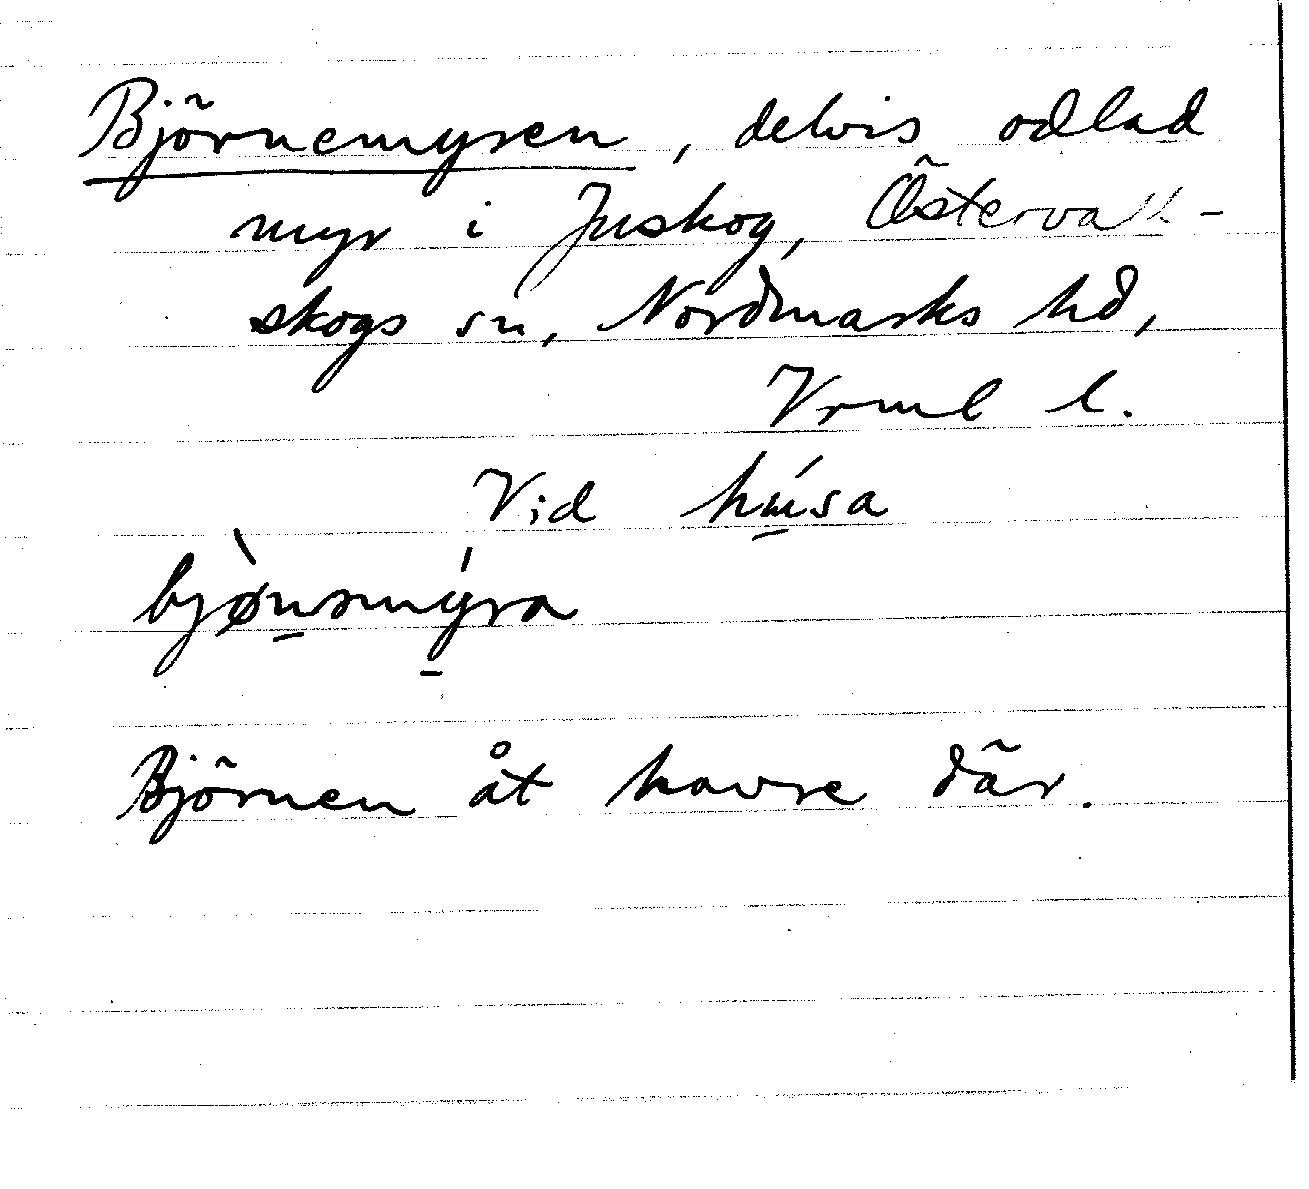 Björnemyren, delvis odlad
myr i Juskog, Östervall-
skogs sn, Nordmarks hd,
Vrml l.
Vid hú̲sa
bjø̀n̲smý̲ra
Björnen åt havre där.